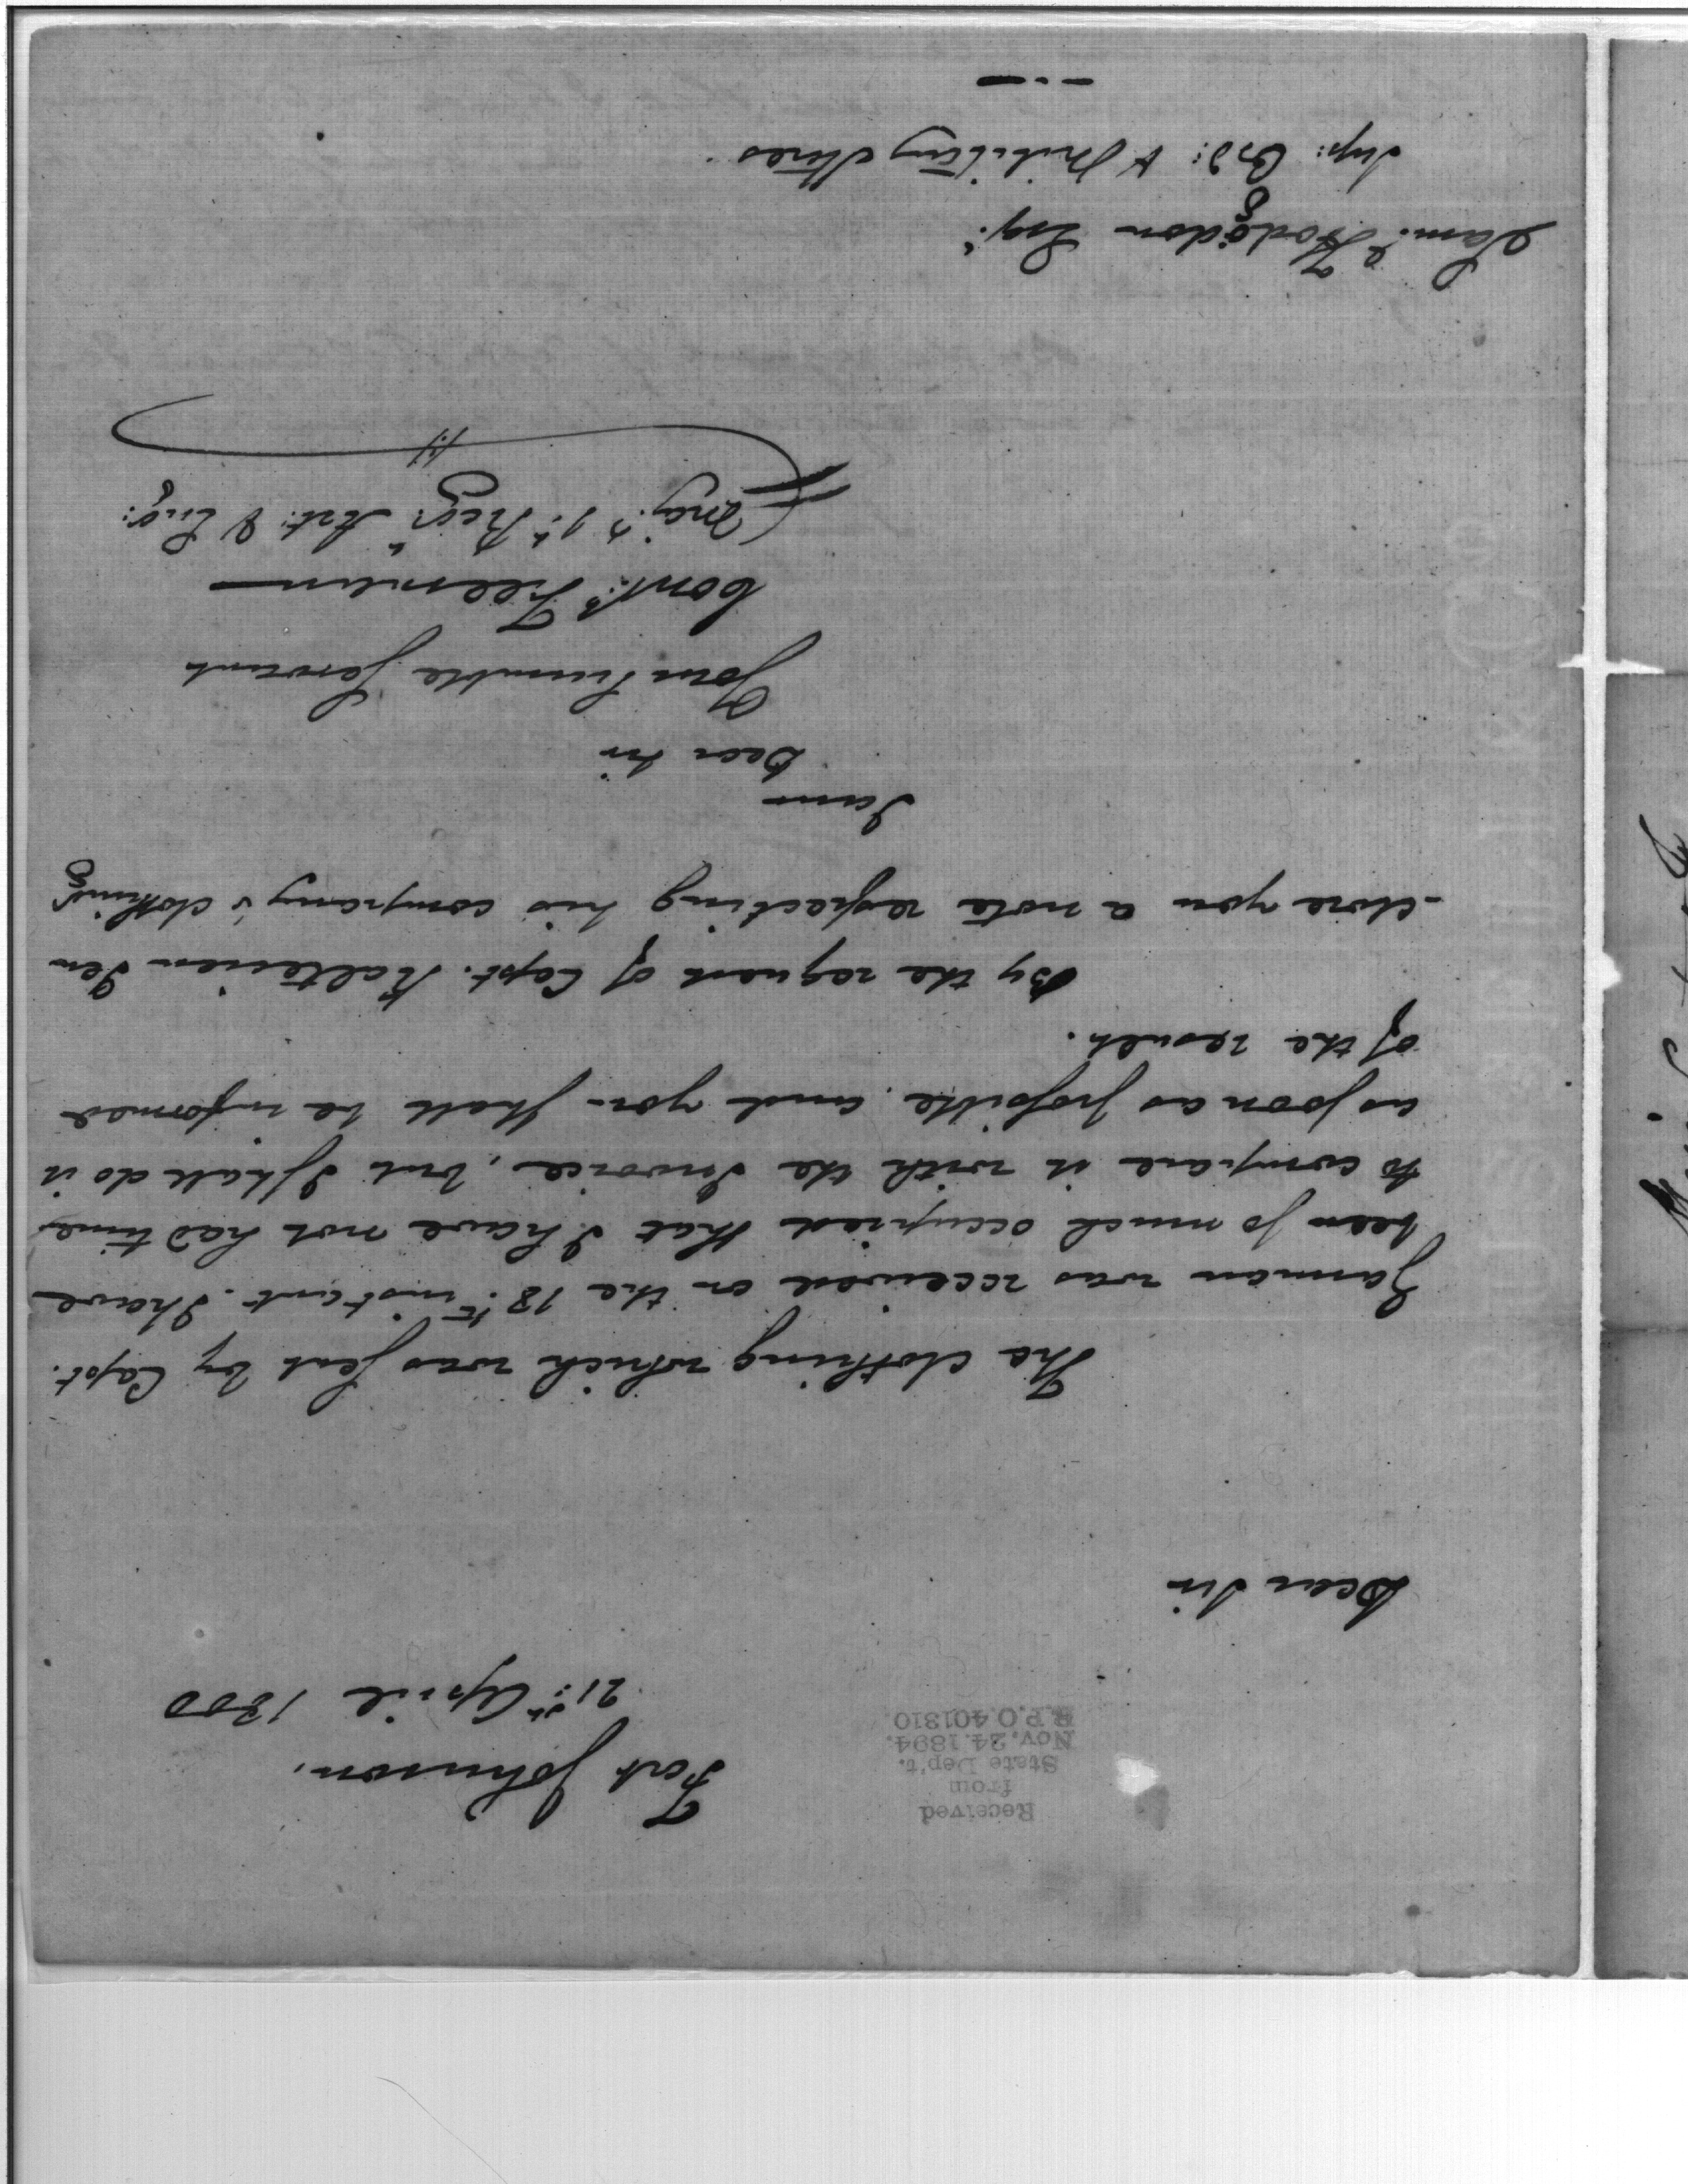 Received
from
State Dep't.
Nov. 24. 1894.
R.P.O. 401310
Fort Johnson.
21st April 1800
Dear Sir
The clothing which was sent by Capt.
Janman was received on the 18th instant. I have
been so much occupied that I have not had time
to compare it with the Invoice, but I shall do it
as soon as possible and you shall be informed
of the result.
By the request of Capt. Kalteisen I en
-close you a note respecting his company's clothing
I am
Dear Sir
Your humble Servant
Const. Freeman
Maj. 1st Regt. Art. & Eng:
Saml. Hodgdon Esqr.
Sup: Ord: & Military Stores